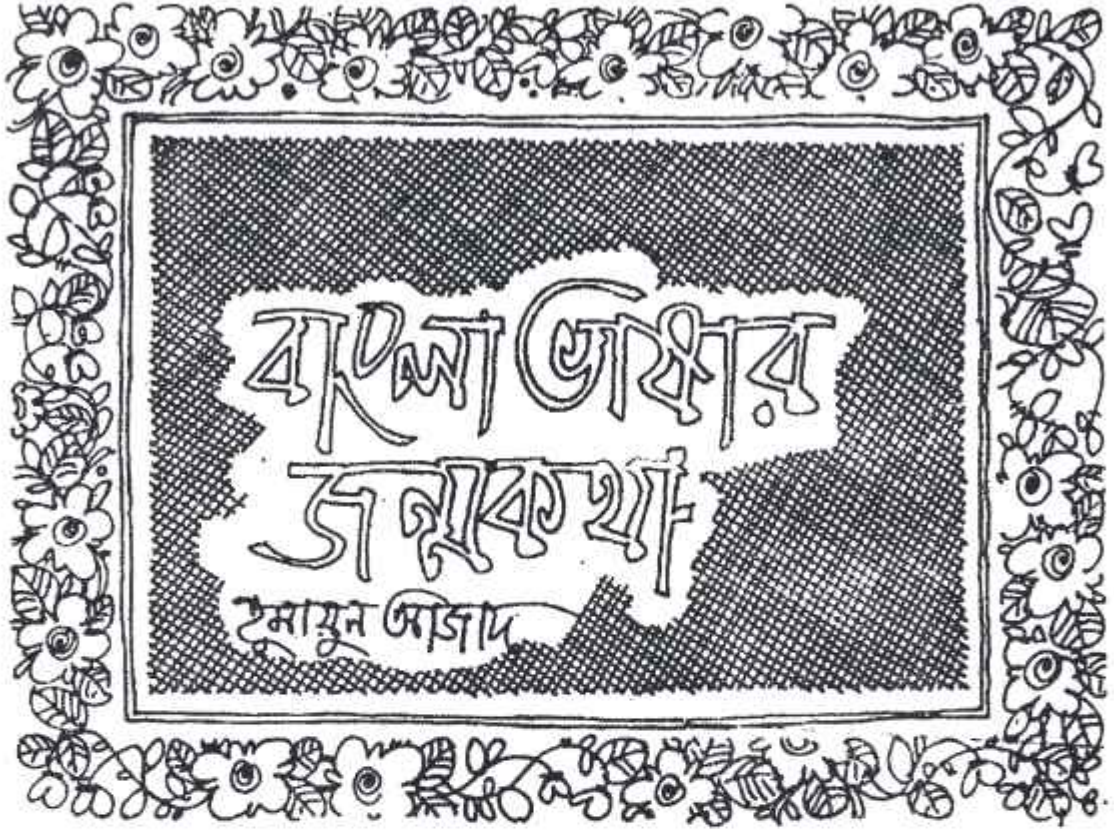 বাংলা ভাষার
জন্মকথা
হুমায়ুন আজাদ